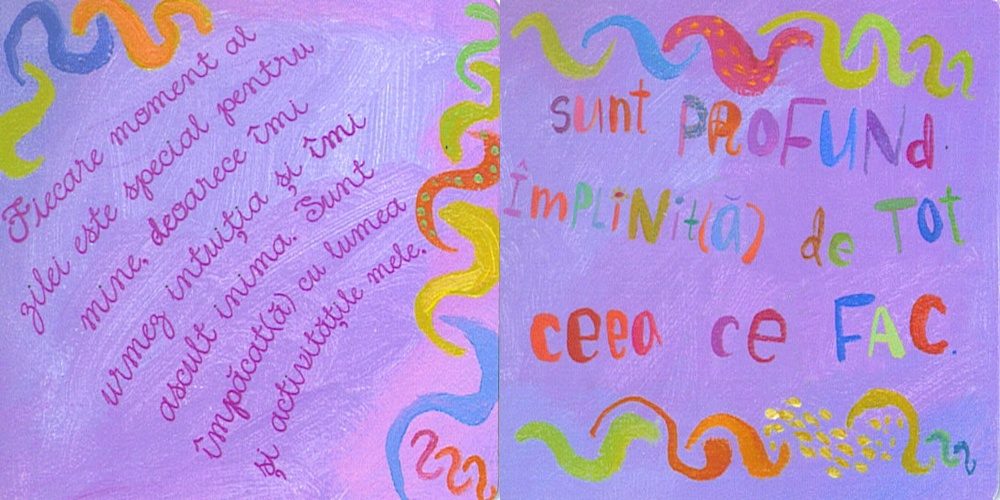 Fiecare moment al
zilei este special pentru
mine, deoarece îmi
urmez intuiția și îmi
ascult inima. Sunt
împăcat(ă) cu lumea
și activitățile mele.
sunt PROFUND
ÎmPLiNit(ă) de TOT
ceea ce FAC.